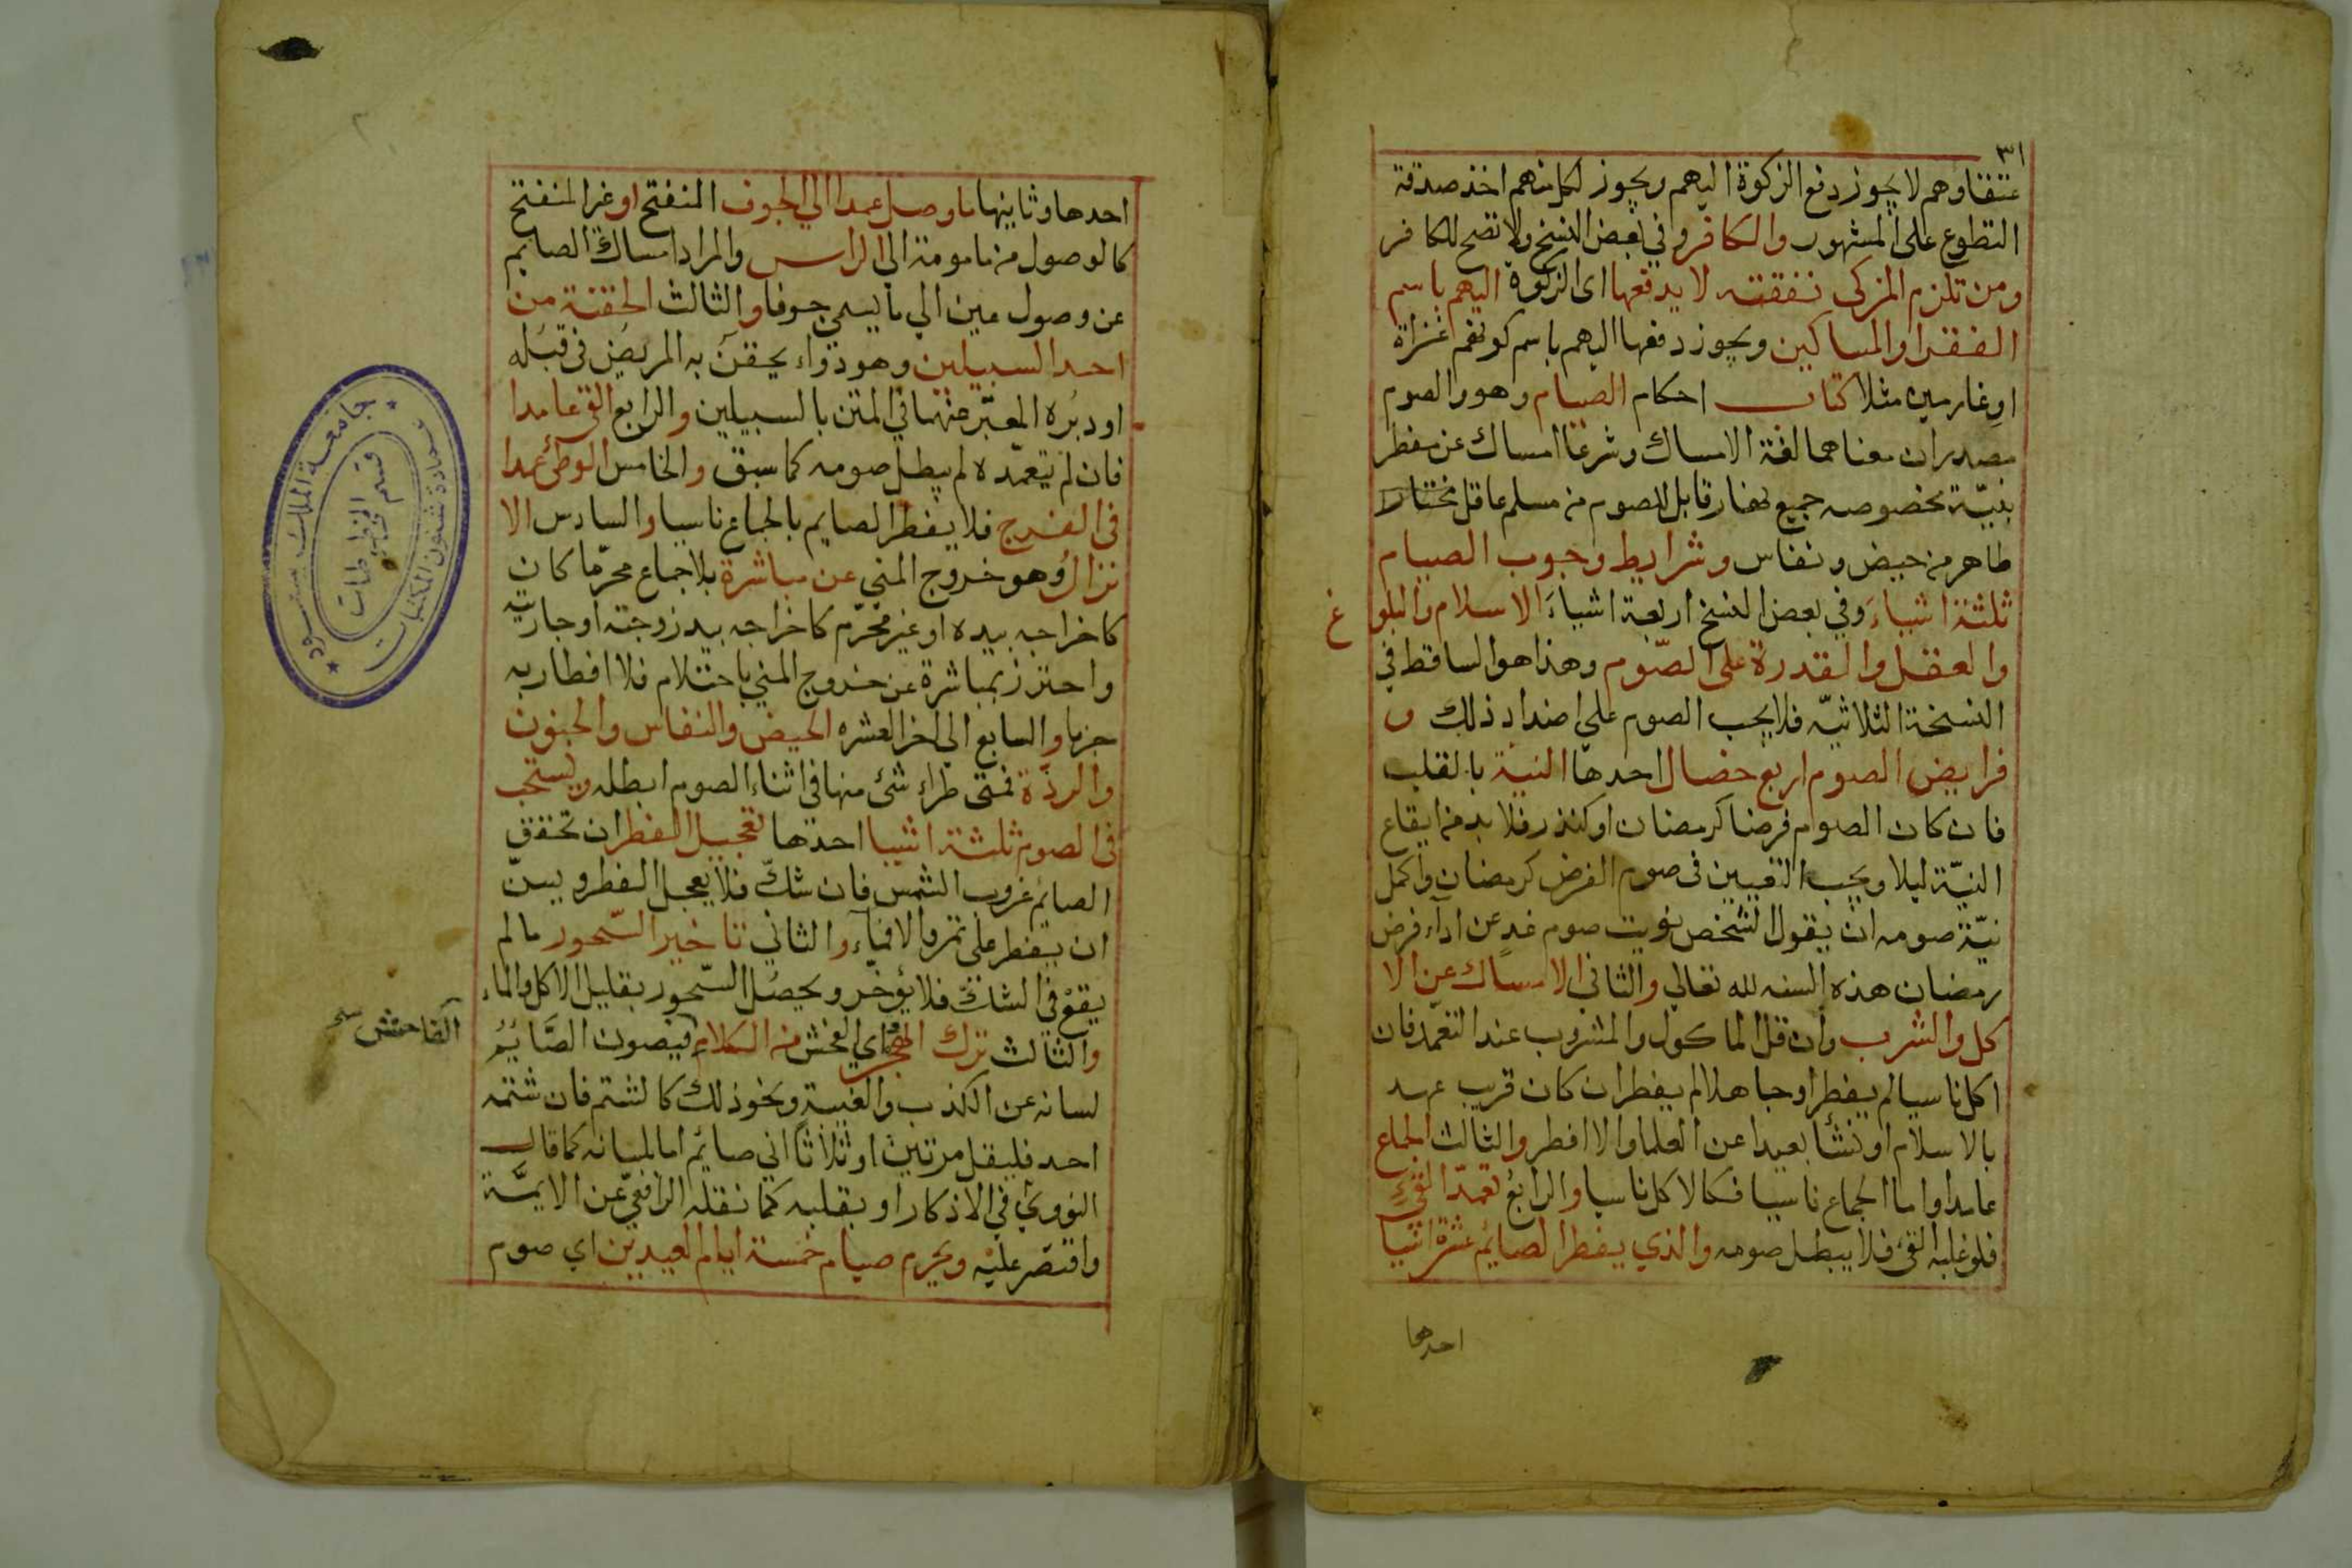 ٣١
عتقاوهم لا يجوز دفع الزكوة اليهم ويجوز لكل منهم اخذ صدقة
التطوع على المشهور والكافر وفي بعض النسخ ولا تصح للكافر
ومن تلزم المزكى نفقته لا يدفعها اى الزكوة اليهم باسم
الفقرا والمساكين ويجوز دفعها اليهم باسم كونهم غزاة
او غارمين مثلا كتاب احكام الصيام وهو والصوم
مصدران معناهما لغة الامساك وشرعا امساك عن مفطر
بنيّة مخصوصه جميع نهار قابل للصوم من مسلم عاقل مختارا
طاهر من حيض ونفاس وشرايط وجوب الصيام
ثلثة اشياءَ وفي بعض النسخ اربعة اشياءَ الاسلام والبلو غ
والعقل والقدرة على الصّوم وهذا هو الساقط في
النسخة الثلاثيّه فلا يجب الصوم علي اضداد ذلك و
فرايض الصوم اربع خصال احدها النية بالقلب
فان كان الصوم فرضا كرمضان او كنذر فلا بد من ايقاع
النيّة ليلا ويجب التعيين فى صوم الفرض كرمضان واكمل
نيّة صومه ان يقول الشخص نويت صوم غدٍ عن ادآء فرض
رمضان هذه السنه لله تعالي والثاني الامساك عن الا
كل والشرب وان قل الماكول والمشروب عند التعمّد فان
اكل ناسيا لم يفطر او جاهلا لم يفطر ان كان قريب عهد
بالاسلام او نشأ بعيدا عن العلما والا افطر والثالث الجماع
عامدا واما الجماع ناسيا فكالاكل ناسيا والرابعُ تعمدّ القئ
فلو غلبه القئ فلا يبطل صومه والذي يفطر الصائم عشرة اشيا
احدها
احدها وثانيها ما وصل عمدا الي الجوف المنفتح او غير المنفتح
كالوصول من مامومة الي الراس والمراد امساك الصايم
عن وصول عين الي ما يسمي جوفا والثالث الحقنة من
احد السبيلين وهو دواء يحقن به المريض فى قبُله
او دبُره المعبّر عنهما في المتن بالسبيلين والرابع القئ عامدا
فان لم يتعمّده لم يبطل صومه كما سبق والخامس الوطئ عمدا
فى الفرج فلا يفطر الصايم بالجماع ناسيا والسادس الا
نزال وهو خروج المني عن مباشرة بلا جماع محرّما كان
كاخراجه بيده او غير محرّم كاخراجه بيد زوجته او جاريته
واحترز بمباشرة عن خروج المني باحتلام فلا افطار به
جزما والسابع الي اخر العشره الحيض والنفاس والجنون
والردّة فمتى طراء شئ منها في اثناء الصوم ابطله ويستحب
فى الصوم ثلثة اشيا احدها تعجيل الفطر ان تحقق
الصائم غروب الشمس فان شكّ فلا يعجل الفطر ويسنّ
ان يفطر على تمر والا فماء والثاني تاخير السّحور ما لم
يقع في الشكّ فلا يؤخر ويحصُل السّحور بقليل الاكل والماء
والثالث ترك الهجر اي الفحش من الكلام فيصون الصَّايمُ
الفاحش
لسانه عن الكذب والغيبة ونحو ذلك كالشتم فان شتمه
احد فليقل مرتين او ثلاثا اني صائم اما بلسانه كما قال
النووي في الاذكار او بقلبه كما نقله الرافعيّ عن الايمّة
واقتصر عليه ويحرم صيام خمسة ايام العيدين اي صوم
جامعة الملك سعود
عمادة شئون المكتبات
قسم المخطوطات